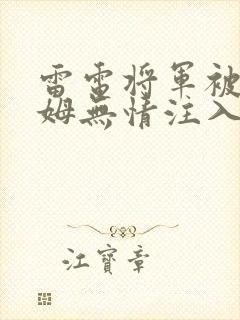 雷電将軍被
姆無情注入
江寳章